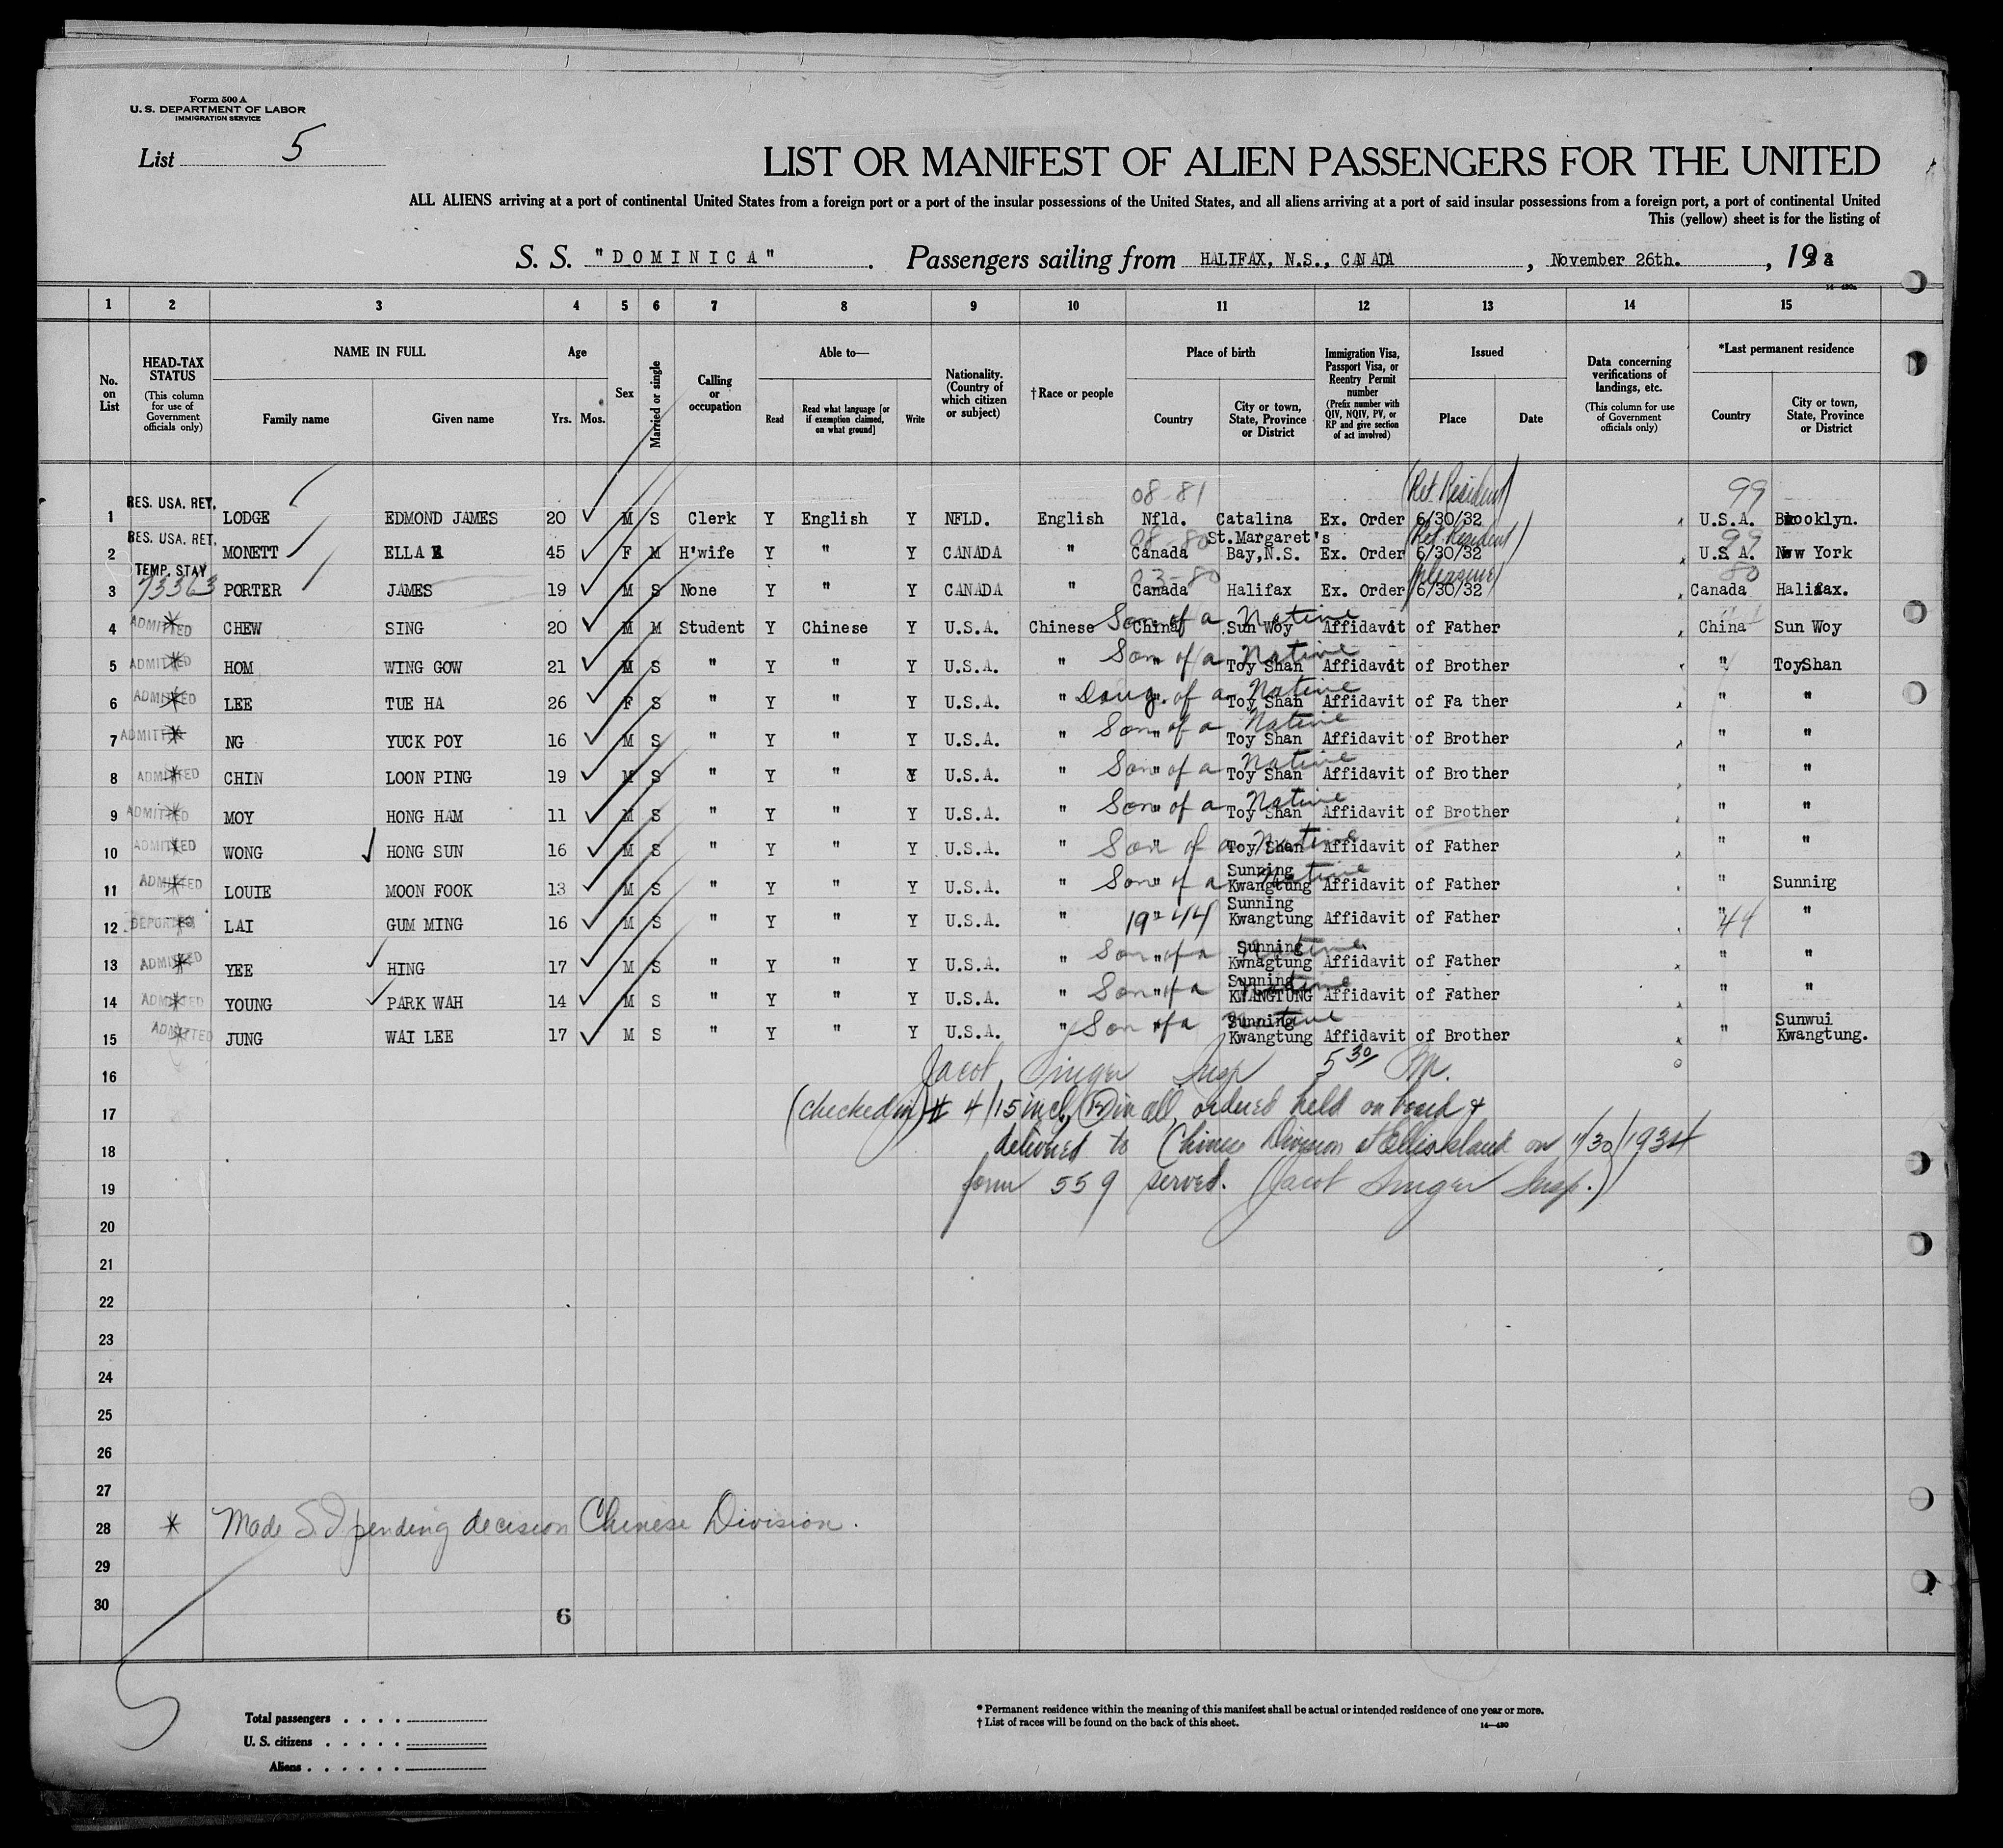 Form 500 A
U. S. DEPARTMENT OF LABOR
IMMIGRATION SERVICE
List 5
LIST OR MANIFEST OF ALIEN PASSENGERS FOR THE UNITED
ALL ALIENS arriving at a port of continental United States from a foreign port or a port of the insular possessions of the United States, and all aliens arriving at a port of said insular possessions from a foreign port, a port of continental United
This (yellow) sheet is for the listing of
S. S. "DOMINICA" . Passengers sailing from HALIFAX, N.S., CANADA , November 26th. , 19
1 2 3 4 5 6 7 8 9 10 11 12 13 14 15
No. on List
HEAD-TAX STATUS (This column for use of Government officials only)
NAME IN FULL Family name Given name
Age Yrs. Mos.
Sex
Married or single
Calling or occupation
Able to— Read Read what language [or if exemption claimed, on what ground] Write
Nationality. (Country of which citizen or subject)
†Race or people
Place of birth Country City or town, State, Province or District
Immigration Visa, Passport Visa, or Reentry Permit number (Prefix number with QIV, NQIV, PV, or RP and give section of act involved)
Issued Place Date
Data concerning verifications of landings, etc. (This column for use of Government officials only)
*Last permanent residence Country City or town, State, Province or District
08-81 (Ret. Resident) 99
1 RES. USA. RET. LODGE EDMOND JAMES 20 M S Clerk Y English Y NFLD. English Nfld. Catalina Ex. Order 6/30/32 U.S.A. Brooklyn.
08-80 (Ret. Resident) 99
2 RES. USA. RET. MONETT ELLA 45 F M H'wife Y " Y CANADA " Canada St.Margaret's Bay,N.S. Ex. Order 6/30/32 U.S.A. New York
03-80 (pleasure) 80
3 TEMP. STAY 73363 PORTER JAMES 19 M S None Y " Y CANADA " Canada Halifax Ex. Order 6/30/32 Canada Halifax.
4 ADMITTED * CHEW SING 20 M M Student Y Chinese Y U.S.A. Chinese China Son of a Native Sun Woy Affidavit of Father China Sun Woy
5 ADMITTED * HOM WING GOW 21 M S " Y " Y U.S.A. " " Son of a Native Toy Shan Affidavit of Brother " ToyShan
6 ADMITTED * LEE TUE HA 26 F S " Y " Y U.S.A. " " Daug. of a Native Toy Shan Affidavit of Fa ther " "
7 ADMITTED * NG YUCK POY 16 M S " Y " Y U.S.A. " " Son of a Native Toy Shan Affidavit of Brother " "
8 ADMITTED * CHIN LOON PING 19 M S " Y " Y U.S.A. " " Son of a Native Toy Shan Affidavit of Brother " "
9 ADMITTED * MOY HONG HAM 11 M S " Y " Y U.S.A. " " Son of a Native Toy Shan Affidavit of Brother " "
10 ADMITTED * WONG HONG SUN 16 M S " Y " Y U.S.A. " " Son of a Native Toy Shan Affidavit of Father " "
11 ADMITTED * LOUIE MOON FOOK 13 M S " Y " Y U.S.A. " " Son of a Native Sunning Kwangtung Affidavit of Father " Sunning
12 DEPORTED * LAI GUM MING 16 M S " Y " Y U.S.A. " " 19-44 Sunning Kwangtung Affidavit of Father " 44 "
13 ADMITTED * YEE HING 17 M S " Y " Y U.S.A. " " Son of a Native Sunning Kwnagtung Affidavit of Father " "
14 ADMITTED * YOUNG PARK WAH 14 M S " Y " Y U.S.A. " " Son of a Native Sunning KWANGTUNG Affidavit of Father " "
15 ADMITTED * JUNG WAI LEE 17 M S " Y " Y U.S.A. " " Son of a Native Sunning Kwangtung Affidavit of Brother " Sunwui Kwangtung.
16 Jacob Singer Insp 5 30 PM.
17 (Checked in) # 4/15 incl, (12) in all, ordered held on board &
18 delivered to Chinese Division at Ellis Island on 11/30/1934
19 form 559 served. (Jacob Singer Insp.)
20
21
22
23
24
25
26
27
28 * Made S I pending decision Chinese Division.
29
30
6
Total passengers . . . .
U. S. citizens . . . . .
Aliens . . . . . .
* Permanent residence within the meaning of this manifest shall be actual or intended residence of one year or more.
† List of races will be found on the back of this sheet.
14—430